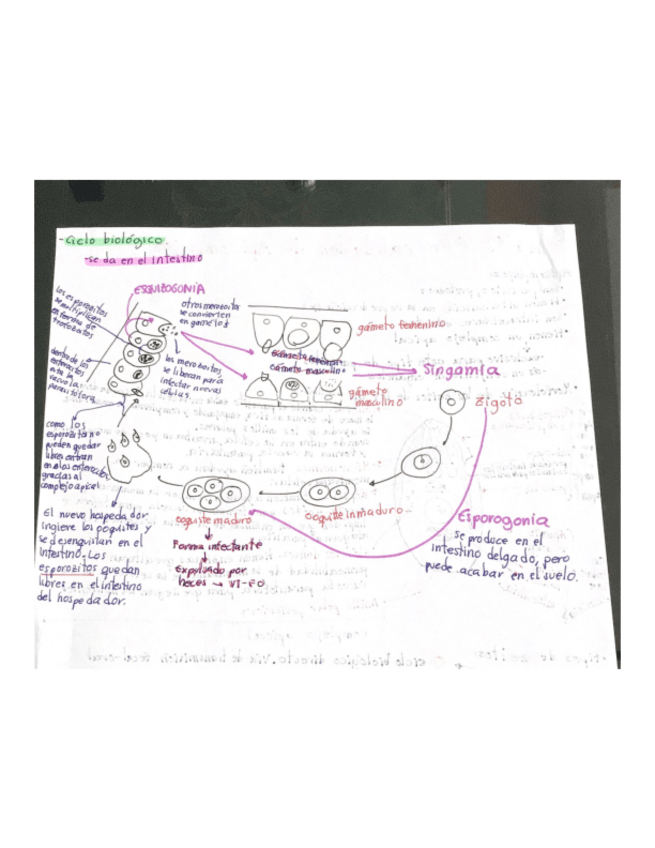 -Ciclo biológico.
-se da en el intestino
ESQUIZOGONIA
los esporozitos
se multiplican
en forma de
trofozoitos
otros merozoitos
se convierten
en gametos
gámeto femenino
gámeto masculino
dentro de los
enterocitos
los merozoitos
se liberan para
infectar nuevas
células
gámeto
masculino
Singamia
zigoto
como los
esporozitos no
pueden quedar
libres entran
en los enterocitos
gracias al
complejo apical
ooquiste maduro
ooquiste inmaduro
Esporogonia
se produce en el
intestino delgado, pero
puede acabar en el suelo.
Forma infectante
expulsado por
heces → VT-FO
El nuevo hospedador
ingiere los ooquites y
se desenquistan en el
intestino. Los
esporozitos quedan
libres en el intestino
del hospedador.